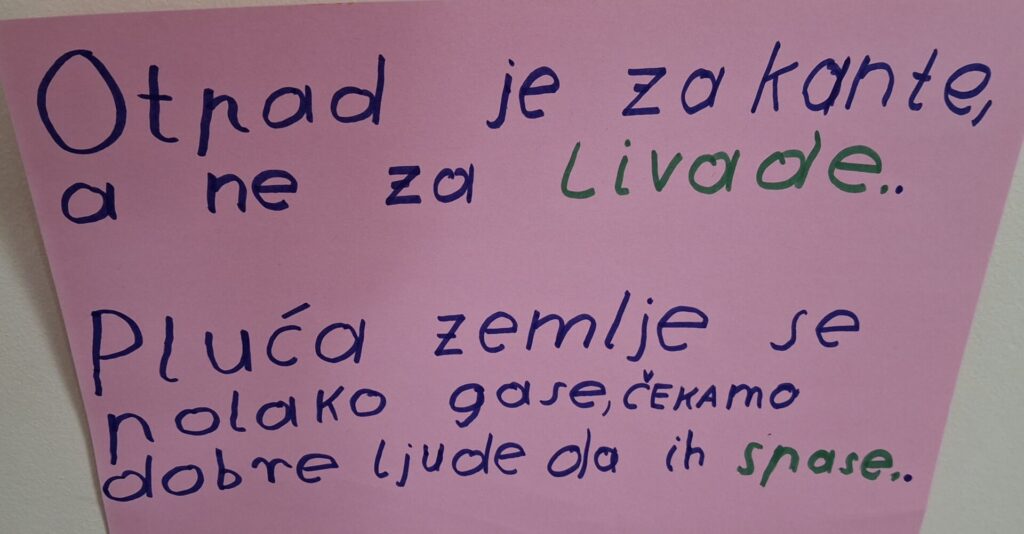 Otpad je za kante,
a ne za livade..
Pluća zemlje se
polako gase, ČEKAmo
dobre ljude da ih spase..